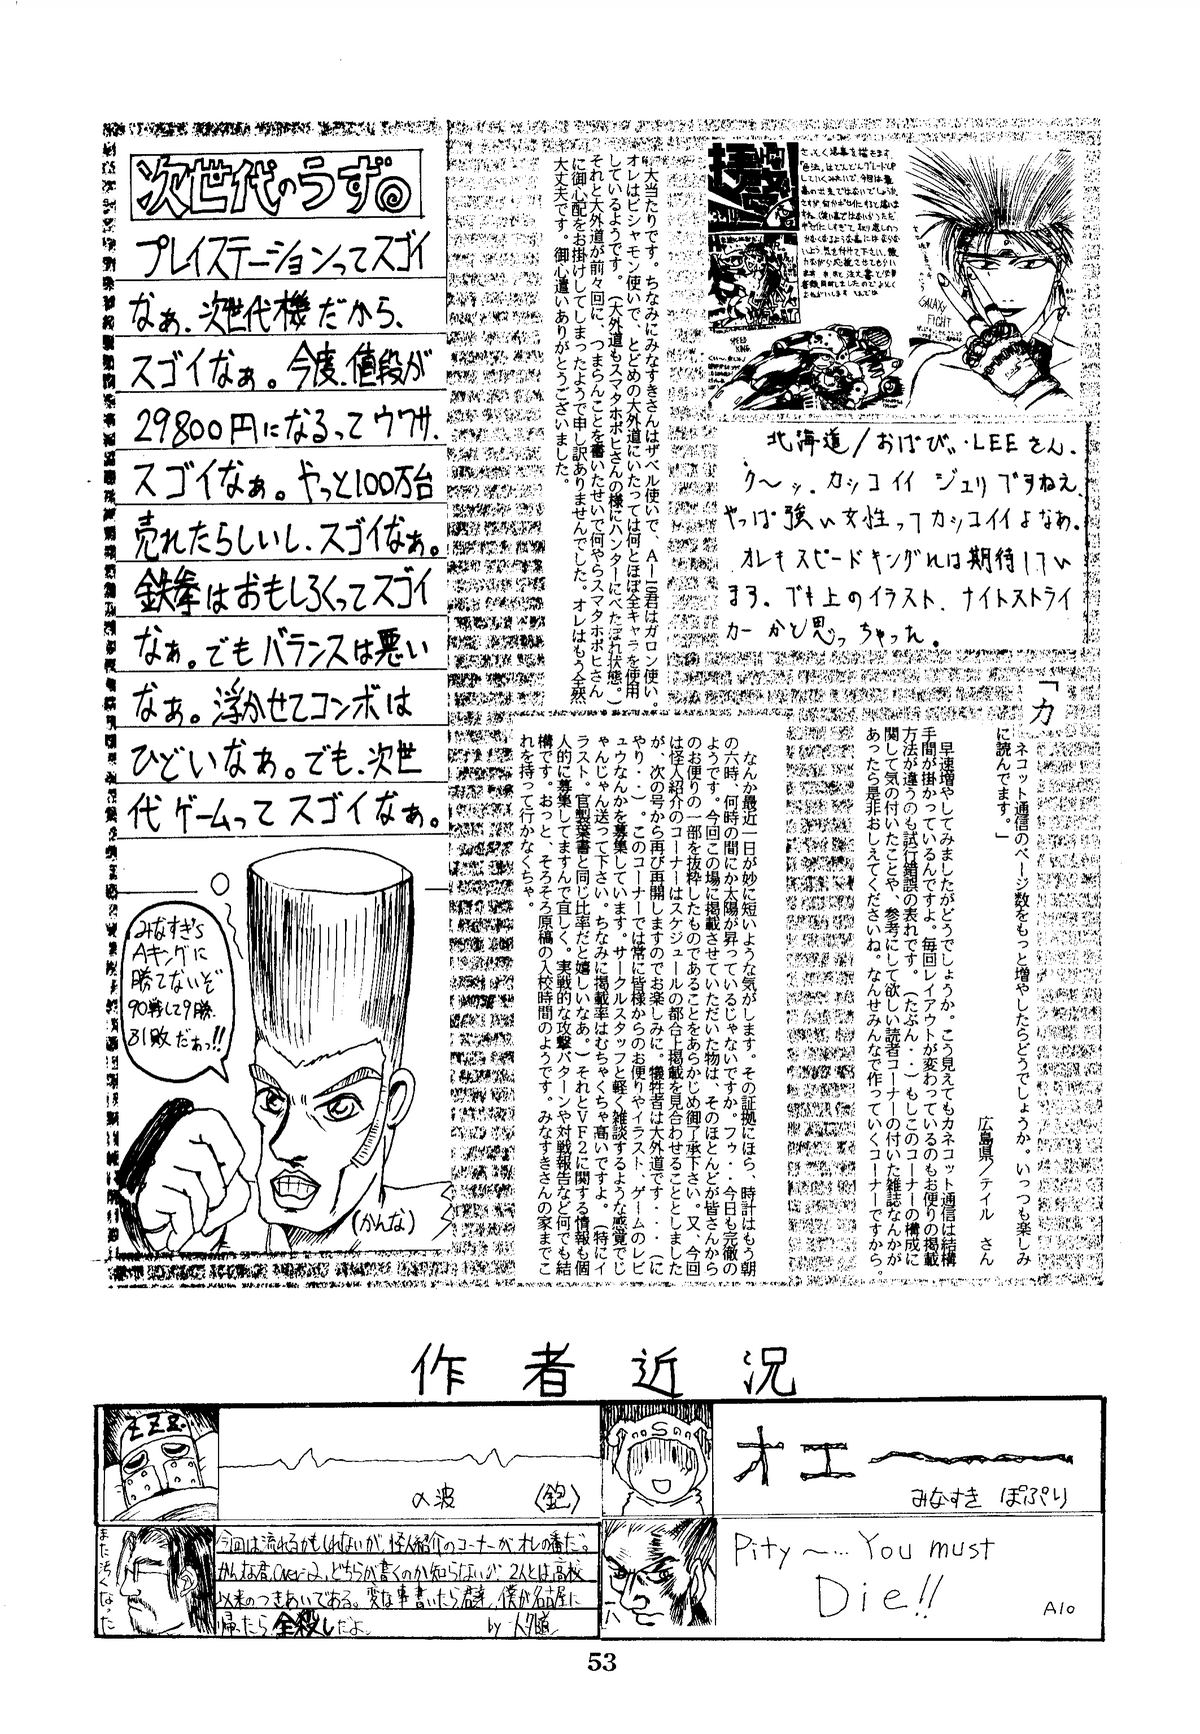 次世代のうず
プレイステーションってスゴイ
なぁ、次世代機だから、
スゴイなぁ。今度、値段が
29800円になるってウワサ、
スゴイなぁ。やっと100万台
売れたらしいし、スゴイなぁ。
鉄拳はおもしろくってスゴイ
なぁ。でもバランスは悪い
なぁ。浮かせてコンボは
ひどいなぁ。でも、次世
代ゲームってスゴイなぁ。
みなすぎ's
Aキングに
勝てないぞ
90戦して9勝、
81敗だぁっ!!
(かんな)
GALAXY
FIGHT
SPEED
KING
北海道/おばび・LEEさん、
ク〜ッ、カッコイイ ジュリですねえ、
やっぱ強い女性ってカッコイイよなぁ。
オレもスピードキングれは期待してい
ます。でも上のイラスト、ナイトストライ
カーかと思っちゃった。
大当たりです。ちなみにみなすきさんはザベル使いで、A−10君はガロン使い。
オレはビシャモン使いで、とどめの大外道にいたっては何とほぼ全キャラを使用
しているようです。(大外道もスマタホホヒさんの様にハンターにべたぼれ状態。)
それと大外道が前々回に、つまらんことを書いたせいで何やらスマタホホヒさん
に御心配をお掛けしてしまったようで申し訳ありませんでした。オレはもう全然
大丈夫です。御心遣いありがとうございました。
「カネコット通信のページ数をもっと増やしたらどうでしょうか。いっつも楽しみ
に読んでます。」
広島県/テイル さん
早速増やしてみましたがどうでしょうか。こう見えてもカネコット通信は結構
手間が掛かっているんですよ。毎回レイアウトが変わっているのもお便りの掲載
方法が違うのも試行錯誤の表れです。(たぶん・・)もしこのコーナーの構成に
関して気の付いたことや、参考にして欲しい読者コーナーの付いた雑誌なんかが
あったら是非おしえてくださいね。なんせみんなで作っていくコーナーですから。
なんか最近一日が妙に短いような気がします。その証拠にほら、時計はもう朝
の六時、何時の間にか太陽が昇っているじゃないですか。フゥ・・今日も完徹の
ようです。今回この場に掲載させていただいた物は、そのほとんどが皆さんから
のお便りの一部を抜粋したものであることをあらかじめ御了承下さい。又、今回
は怪人紹介のコーナーはスケジュールの都合上掲載を見合わせることとしました
が、次の号から再び再開しますのでお楽しみに。犠牲者は大外道です・・・(に
やり・・)。このコーナーでは常に皆様からのお便りやイラスト、ゲームのレビ
ュウなんかを募集しています。サークルスタッフと軽く雑談するような感覚でじ
ゃんじゃん送って下さい。ちなみに掲載率はむちゃくちゃ高いですよ。(特にイ
ラスト、官製葉書と同じ比率だと嬉しいなあ。)それとVF2に関する情報も個
人的に募集してますんで宜しく。実戦的な攻撃パターンや対戦報告など何でも結
構です。おっと、そろそろ原稿の入校時間のようです。みなすきさんの家までこ
れを持って行かなくちゃ。
作者近況
ZZZ
α波 〈鉋〉
オエ〜
みなすき ぽぷり
また汚くなった
今回は流れるかもしれないが、怪人紹介のコーナーがオレの番だ。
かんな君(Ver-2)、どちらが書くのか知らないが、2人とは高校
以来のつきあいである。変な事書いたら君達、僕が名古屋に
帰ったら全殺しだよ。 by 大外道
Pity〜… You must
Die!!
A10
53